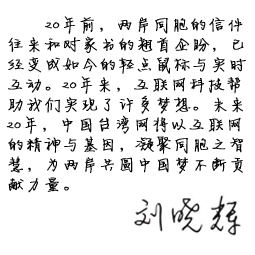 20年前，两岸同胞的信件
往来和对家书的翘首企盼，已
经变成如今的轻点鼠标与实时
互动。20年来，互联网科技帮
助我们实现了许多梦想。未来
20年，中国台湾网将以互联网
的精神与基因，凝聚同胞之智
慧，为两岸共圆中国梦不断贡
献力量。
刘晓辉